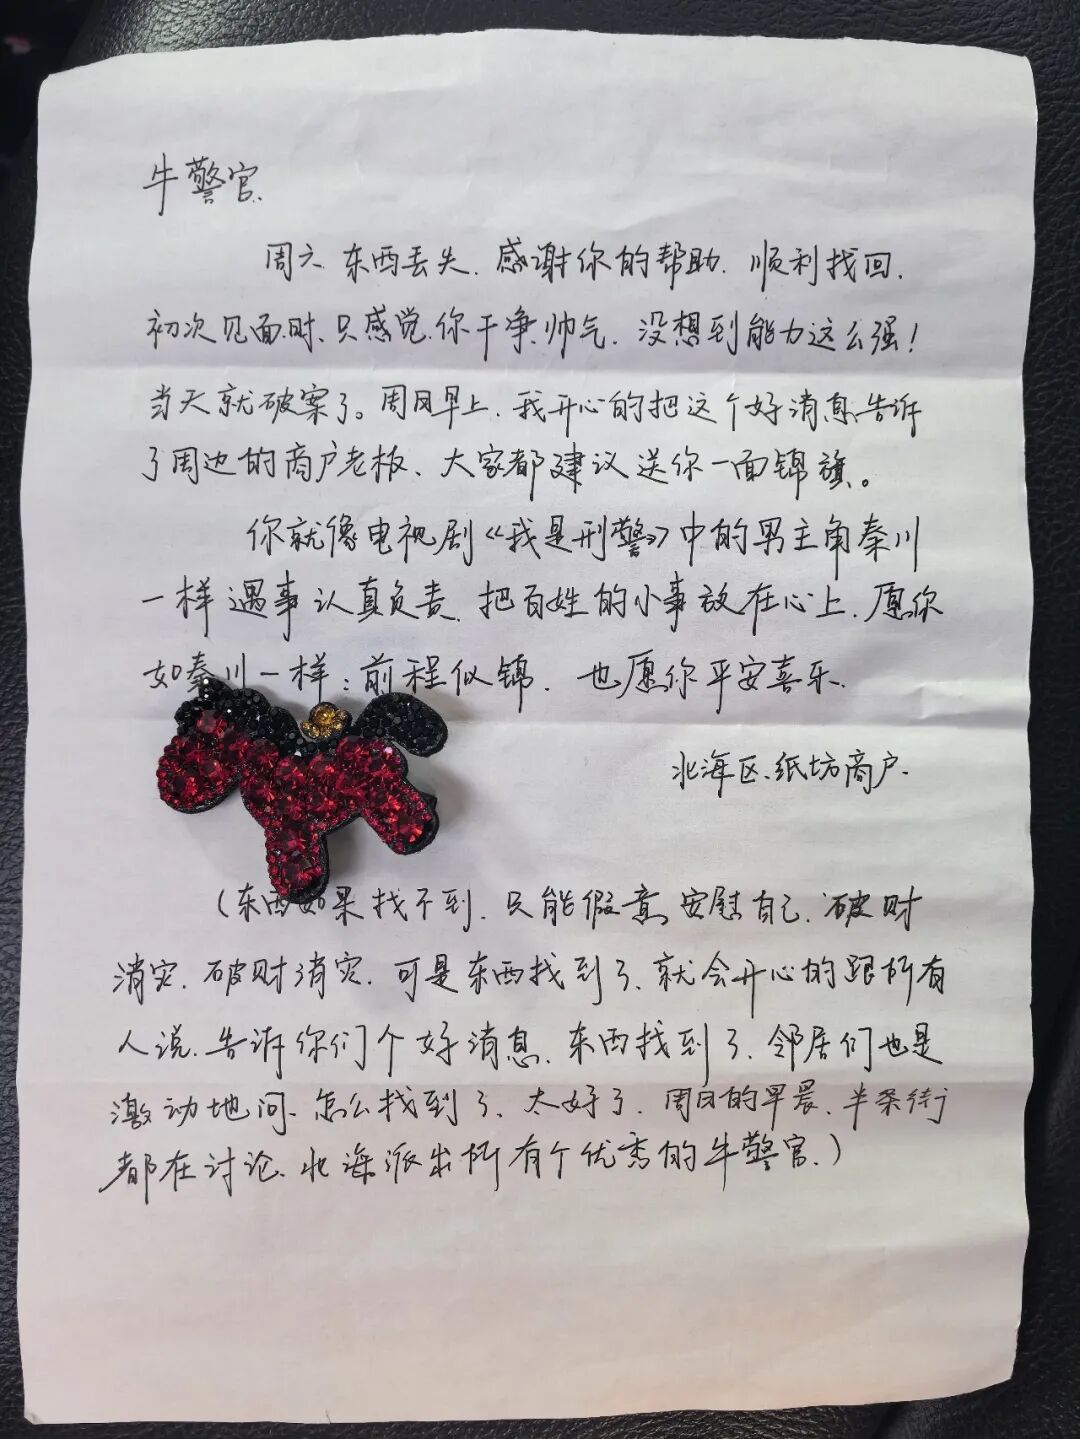 牛警官.
周六东西丢失.感谢你的帮助.顺利找回.
初次见面时、只感觉你干净帅气.没想到能力这么强!
当天就破案了。周日早上.我开心的把这个好消息告诉
了周边的商户老板、大家都建议送你一面锦旗。
你就像电视剧《我是刑警》中的男主角秦川
一样遇事认真负责.把百姓的小事放在心上.愿你
如秦川一样:前程似锦.也愿你平安喜乐.
北海区.纸坊商户.
(东西如果找不到.只能假意安慰自己.破财
消灾.破财消灾.可是东西找到了、就会开心的跟所有
人说.告诉你们个好消息.东西找到了.邻居们也是
激动地问、怎么找到了、太好了.周日的早晨.半条街
都在讨论.北海派出所有个优秀的牛警官.)